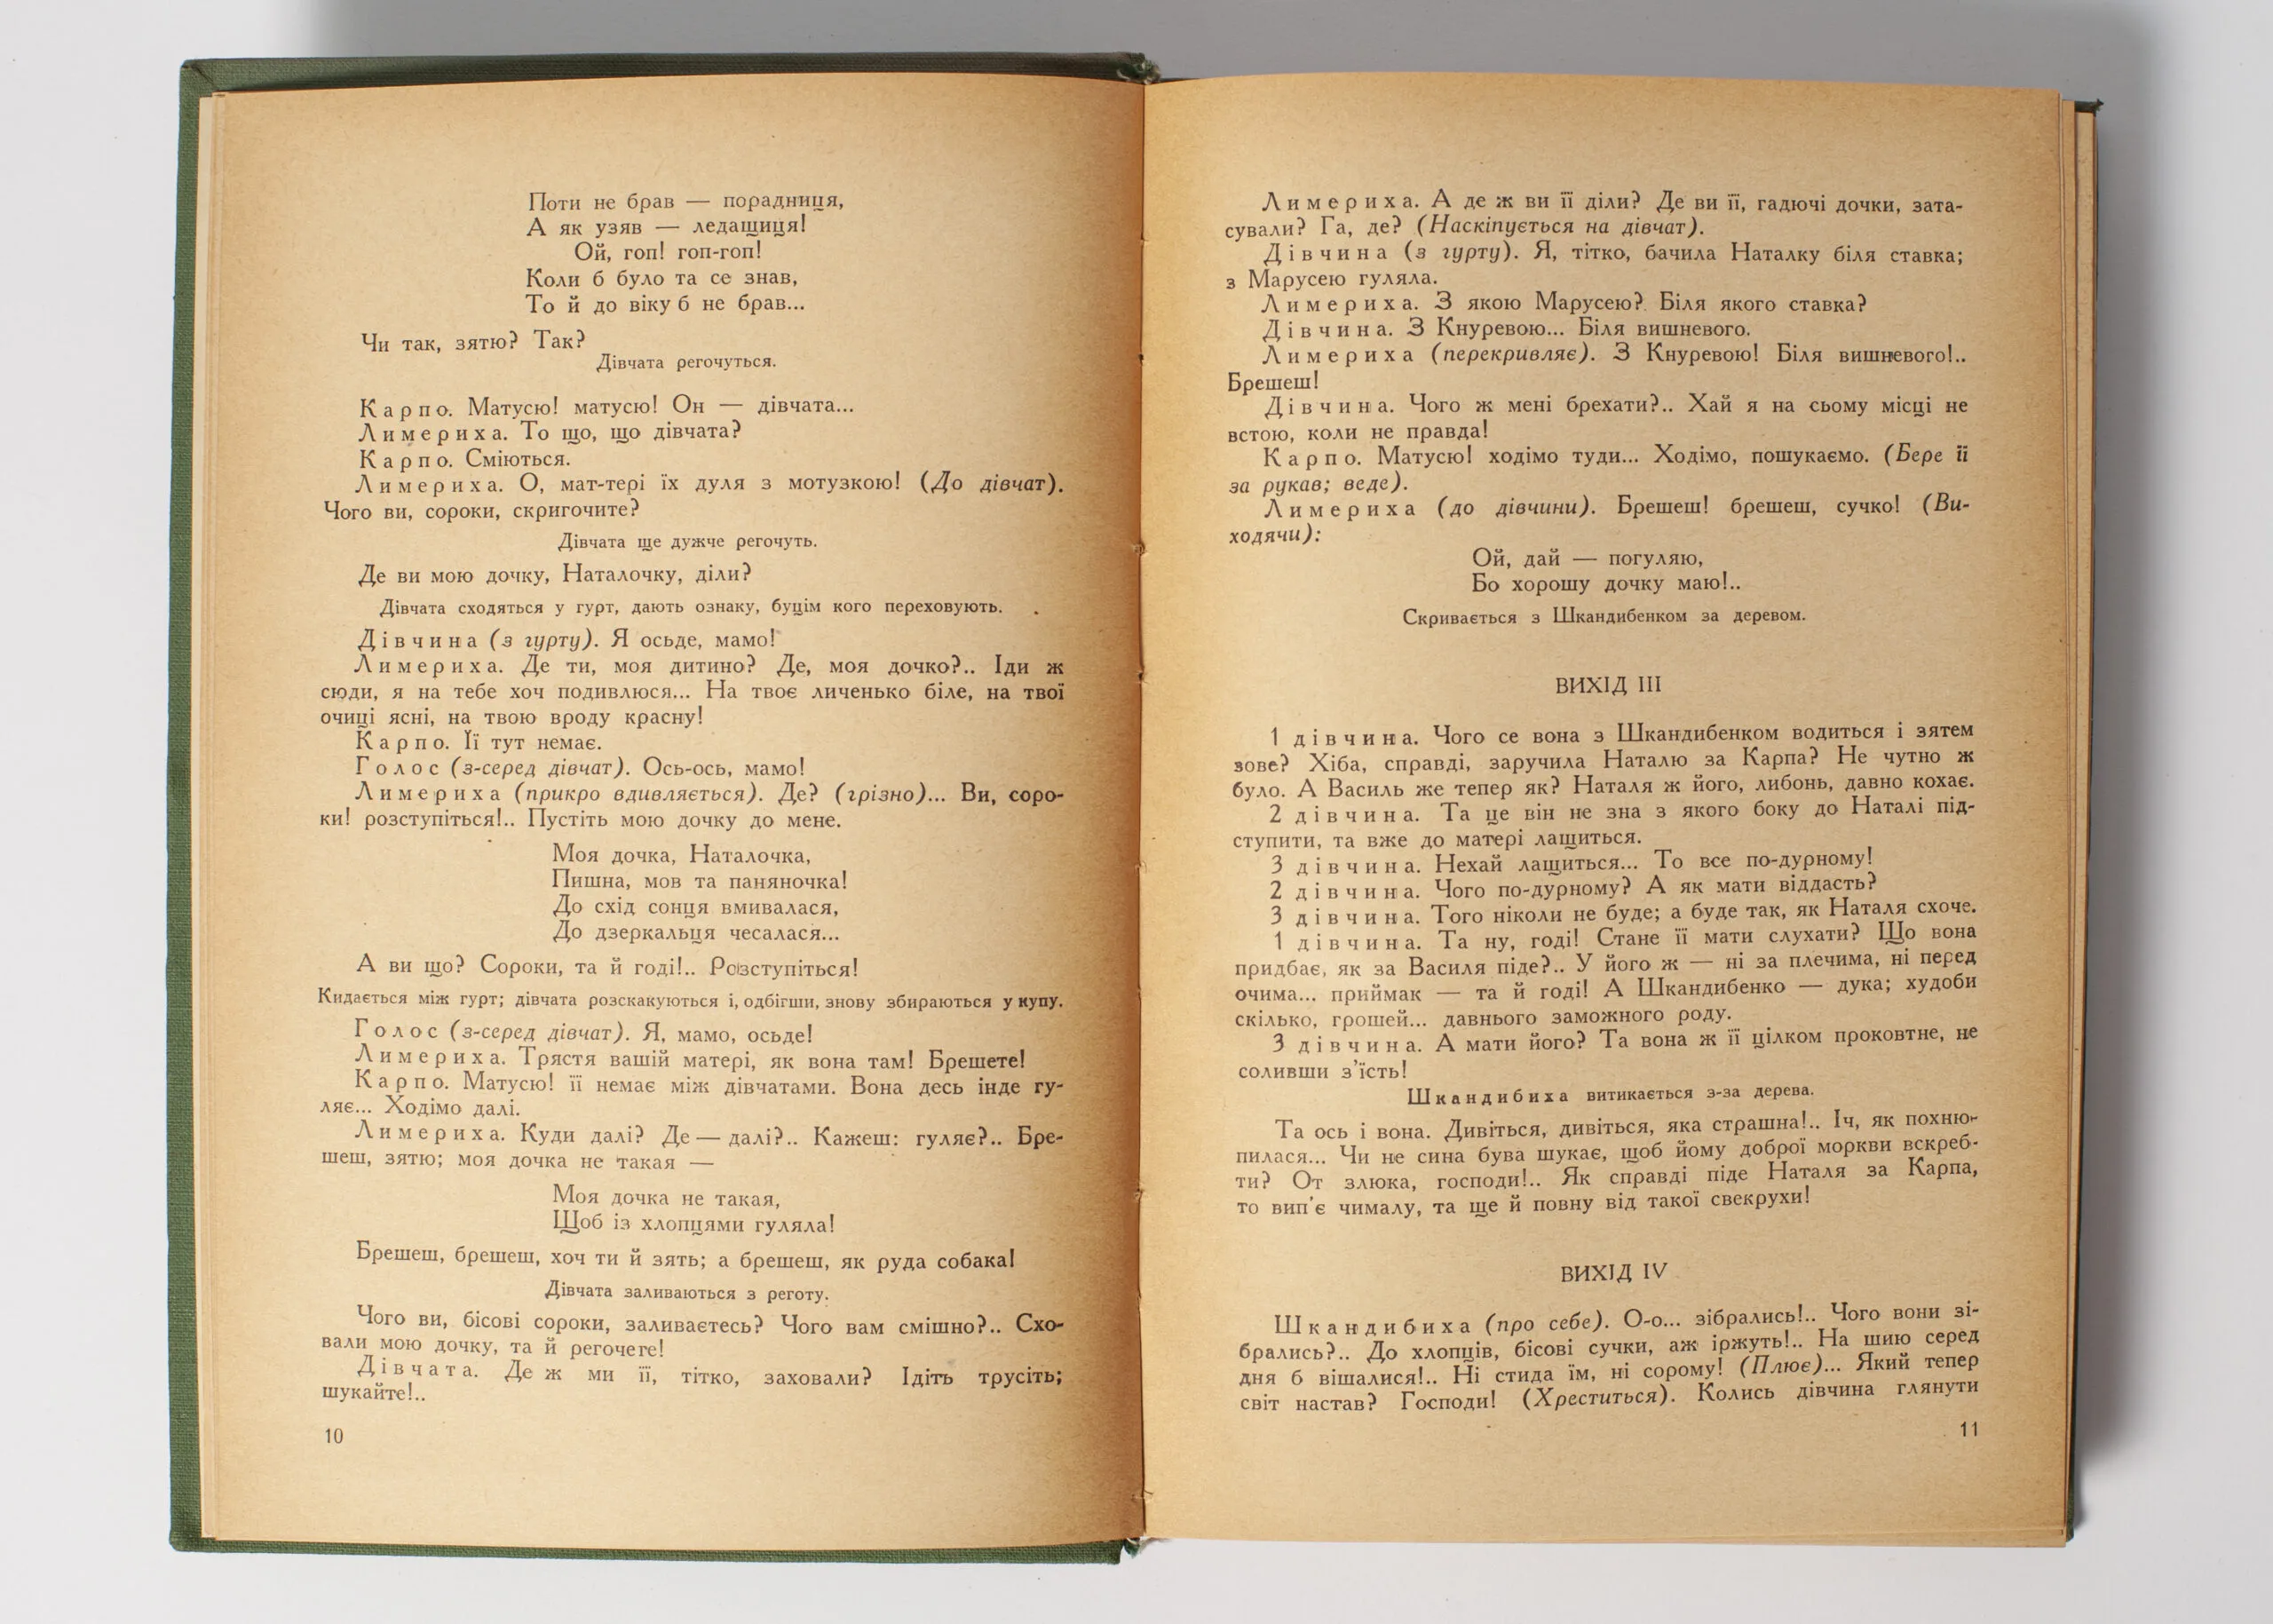 Поти не брав — порадниця,
А як узяв — ледащиця!
Ой, гоп! гоп-гоп!
Коли б було та се знав,
То й до віку б не брав...
Чи так, зятю? Так?
Дівчата регочуться.
Карпо. Матусю! матусю! Он — дівчата...
Лимериха. То що, що дівчата?
Карпо. Сміються.
Лимериха. О, мат-тері їх дуля з мотузкою! (До дівчат).
Чого ви, сороки, скригочите?
Дівчата ще дужче регочуть.
Де ви мою дочку, Наталочку, діли?
Дівчата сходяться у гурт, дають ознаку, буцім кого переховують.
Дівчина (з гурту). Я осьде, мамо!
Лимериха. Де ти, моя дитино? Де, моя дочко?.. Іди ж
сюди, я на тебе хоч подивлюся... На твоє личенько біле, на твої
очиці ясні, на твою вроду красну!
Карпо. Її тут немає.
Голос (з-серед дівчат). Ось-ось, мамо!
Лимериха (прикро вдивляється). Де? (грізно)... Ви, соро-
ки! розступіться!.. Пустіть мою дочку до мене.
Моя дочка, Наталочка,
Пишна, мов та паняночка!
До схід сонця вмивалася,
До дзеркальця чесалася...
А ви що? Сороки, та й годі!.. Розступіться!
Кидається між гурт; дівчата розскакуються і, одбігши, знову збираються у купу.
Голос (з-серед дівчат). Я, мамо, осьде!
Лимериха. Трястя вашій матері, як вона там! Брешете!
Карпо. Матусю! її немає між дівчатами. Вона десь інде гу-
ляє... Ходімо далі.
Лимериха. Куди далі? Де — далі?.. Кажеш: гуляє?.. Бре-
шеш, зятю; моя дочка не такая —
Моя дочка не такая,
Щоб із хлопцями гуляла!
Брешеш, брешеш, хоч ти й зять; а брешеш, як руда собака!
Дівчата заливаються з реготу.
Чого ви, бісові сороки, заливаєтесь? Чого вам смішно?.. Схо-
вали мою дочку, та й регочете!
Дівчата. Де ж ми її, тітко, заховали? Ідіть трусіть;
шукайте!..
10
Лимериха. А де ж ви її діли? Де ви її, гадючі дочки, зата-
сували? Га, де? (Наскіпується на дівчат).
Дівчина (з гурту). Я, тітко, бачила Наталку біля ставка;
з Марусею гуляла.
Лимериха. З якою Марусею? Біля якого ставка?
Дівчина. З Кнуревою... Біля вишневого.
Лимериха (перекривляє). З Кнуревою! Біля вишневого!..
Брешеш!
Дівчина. Чого ж мені брехати?.. Хай я на сьому місці не
встою, коли не правда!
Карпо. Матусю! ходімо туди... Ходімо, пошукаємо. (Бере її
за рукав; веде).
Лимериха (до дівчини). Брешеш! брешеш, сучко! (Ви-
ходячи):
Ой, дай — погуляю,
Бо хорошу дочку маю!..
Скривається з Шкандибенком за деревом.
ВИХІД III
1 дівчина. Чого се вона з Шкандибенком водиться і зятем
зове? Хіба, справді, заручила Наталю за Карпа? Не чутно ж
було. А Василь же тепер як? Наталя ж його, либонь, давно кохає.
2 дівчина. Та це він не зна з якого боку до Наталі під-
ступити, та вже до матері лащиться.
3 дівчина. Нехай лащиться... То все по-дурному!
2 дівчина. Чого по-дурному? А як мати віддасть?
3 дівчина. Того ніколи не буде; а буде так, як Наталя схоче.
1 дівчина. Та ну, годі! Стане її мати слухати? Що вона
придбає, як за Василя піде?.. У його ж — ні за плечима, ні перед
очима... приймак — та й годі! А Шкандибенко — дука; худоби
скілько, грошей... давнього заможного роду.
3 дівчина. А мати його? Та вона ж її цілком проковтне, не
соливши з'їсть!
Шкандибиха витикається з-за дерева.
Та ось і вона. Дивіться, дивіться, яка страшна!.. Іч, як похню-
пилася... Чи не сина бува шукає, щоб йому доброї моркви вскреб-
ти? От злюка, господи!.. Як справді піде Наталя за Карпа,
то вип'є чималу, та ще й повну від такої свекрухи!
ВИХІД IV
Шкандибиха (про себе). О-о... зібрались!.. Чого вони зі-
брались?.. До хлопців, бісові сучки, аж іржуть!.. На шию серед
дня б вішалися!.. Ні стида їм, ні сорому! (Плює)... Який тепер
світ настав? Господи! (Хреститься). Колись дівчина глянути
11